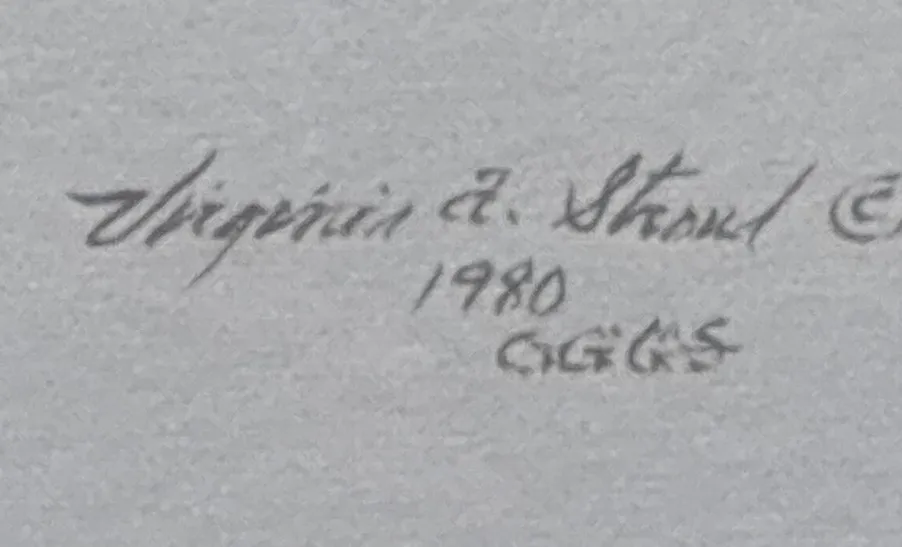 Virginia A. Stroud ©
1980